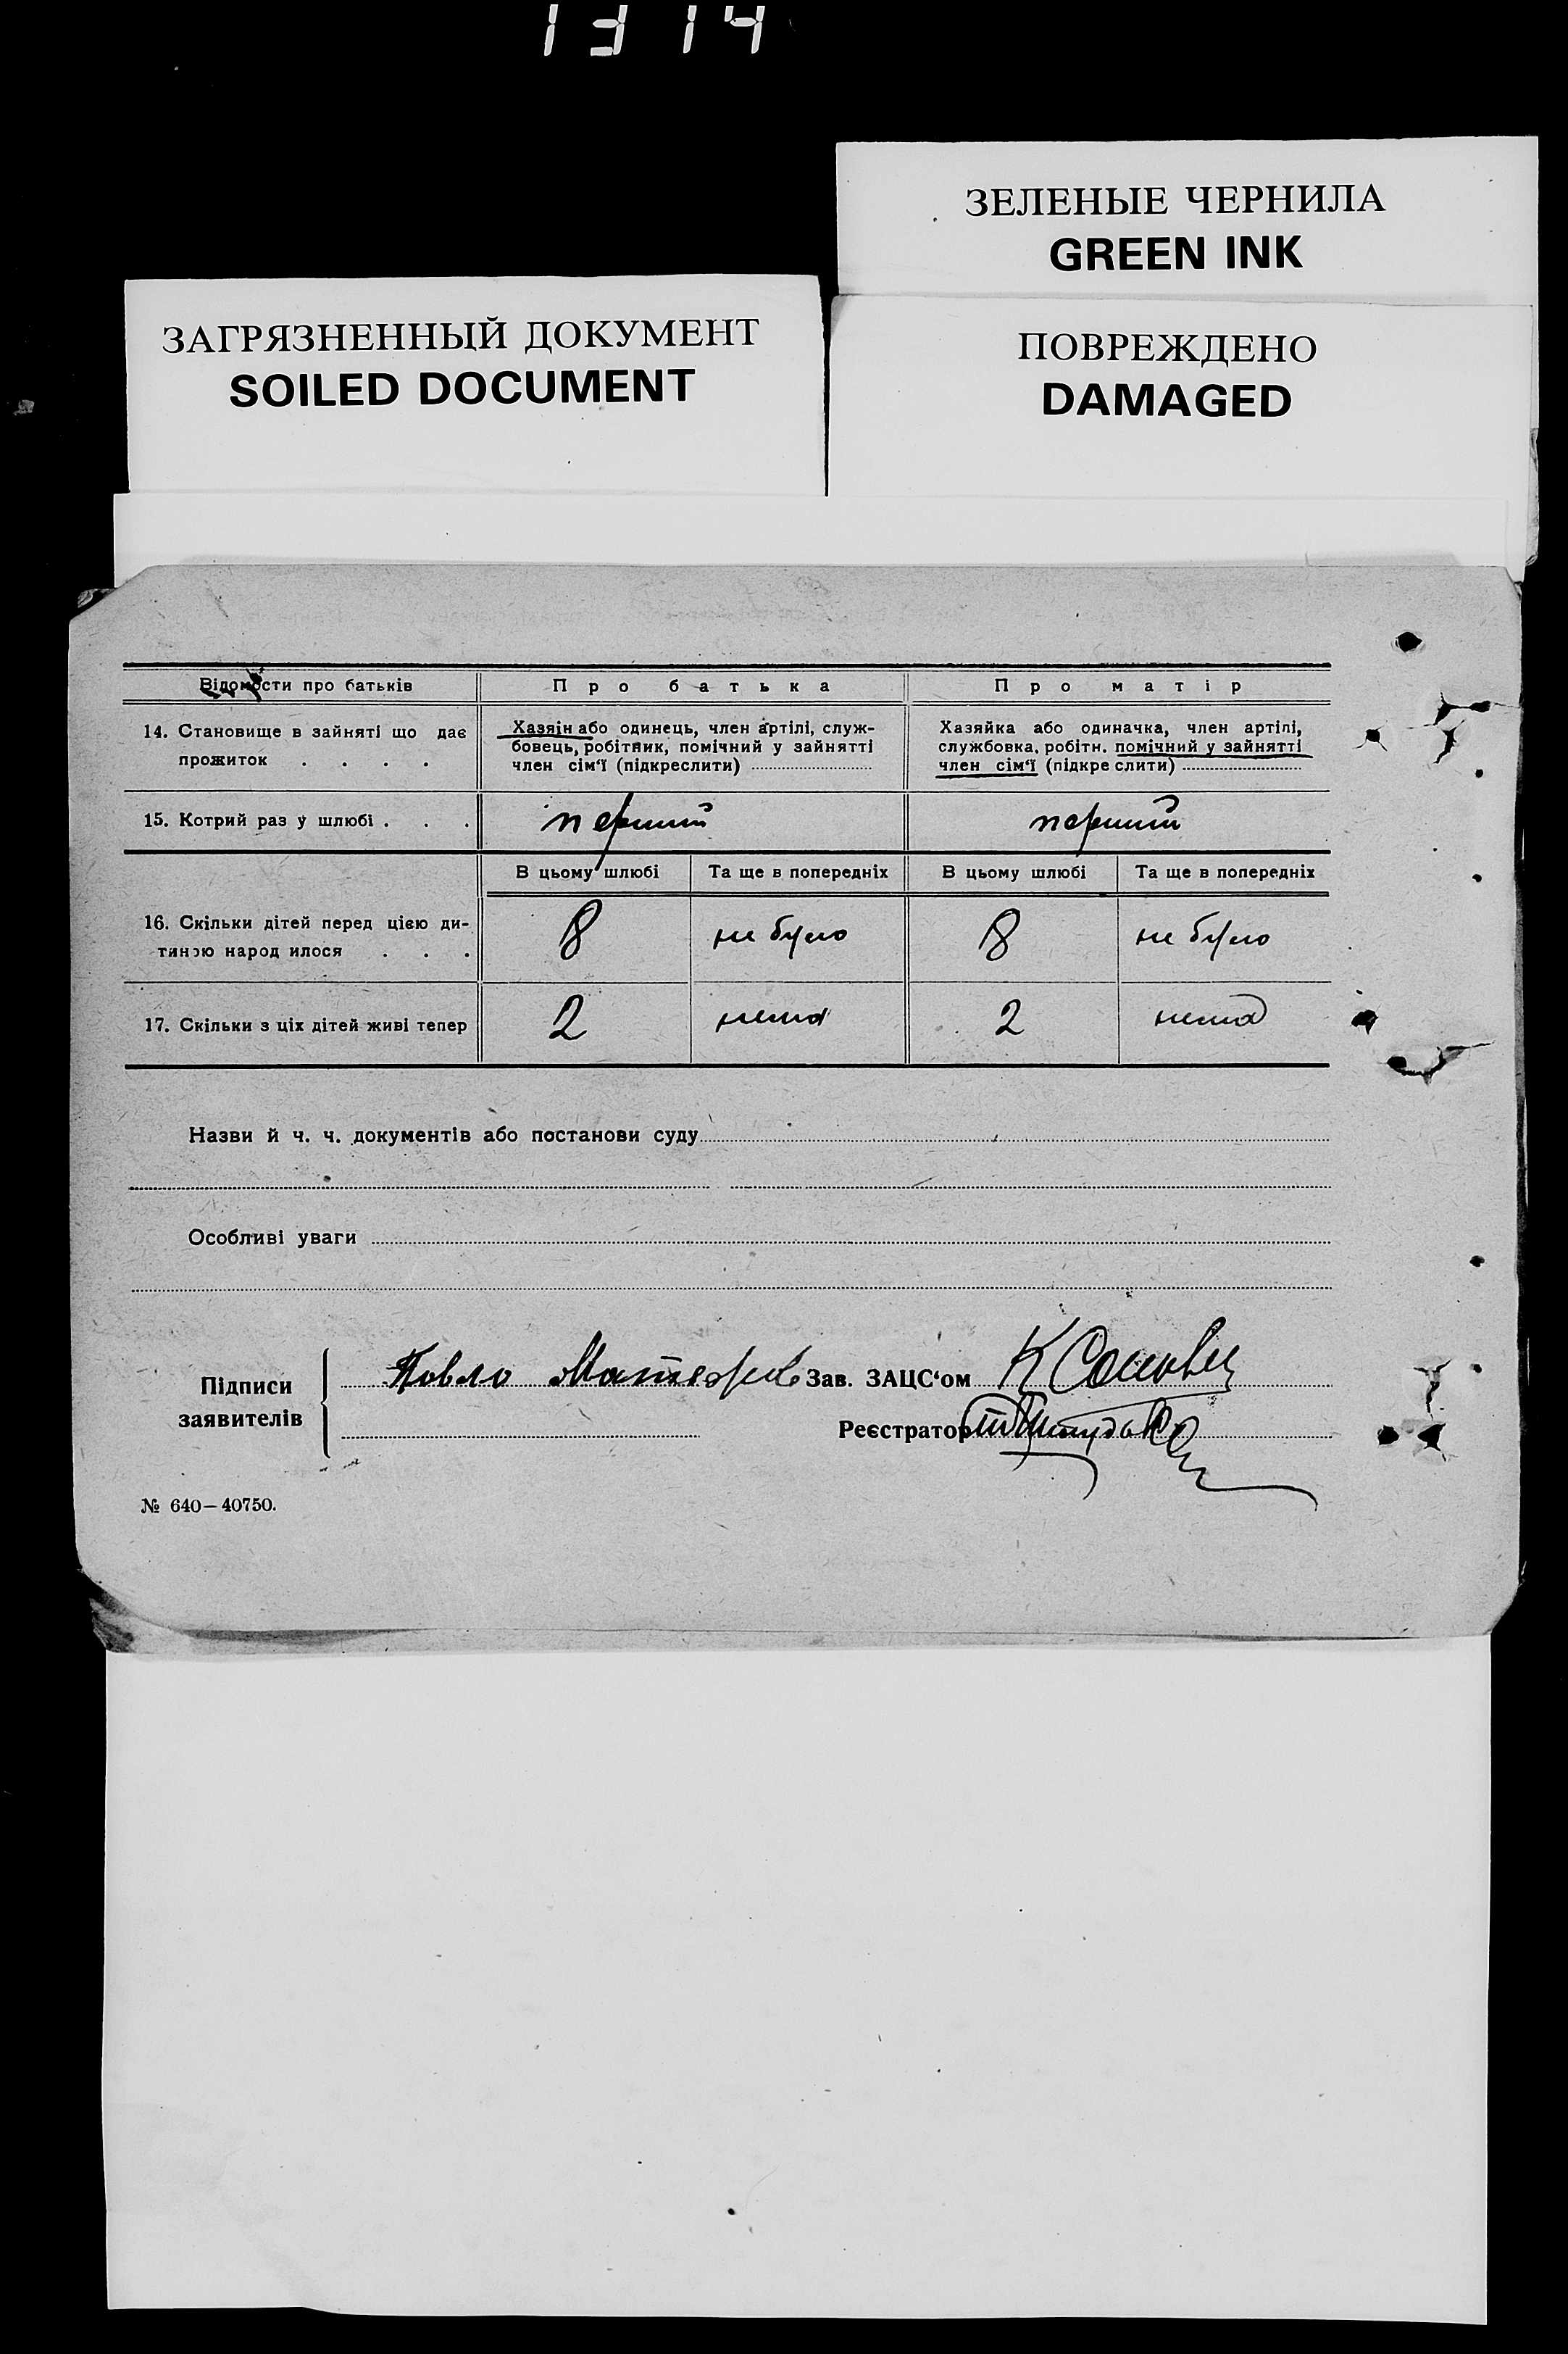 1314
ЗЕЛЕНЫЕ ЧЕРНИЛА
GREEN INK
ЗАГРЯЗНЕННЫЙ ДОКУМЕНТ
SOILED DOCUMENT
ПОВРЕЖДЕНО
DAMAGED
Відомости про батьків Про батька Про матір
14. Становище в зайняті що дає
прожиток . . . .
Хазяїн або одинець, член артілі, служ-
бовець, робітник, помічний у зайнятті
член сім'ї (підкреслити)
Хазяйка або одиначка, член артілі,
службовка, робітн. помічний у зайнятті
член сім'ї (підкре слити)
15. Котрий раз у шлюбі . . . перший перший
В цьому шлюбі Та ще в попередніх В цьому шлюбі Та ще в попередніх
16. Скільки дітей перед цією ди-
тиною народ илося . . . 8 не було 8 не було
17. Скільки з ціх дітей живі тепер 2 нема 2 нема
Назви й ч. ч. документів або постанови суду
Особливі уваги
Підписи
заявителів
Павло
Зав. ЗАЦС'ом
Реєстратор
№ 640—40750.